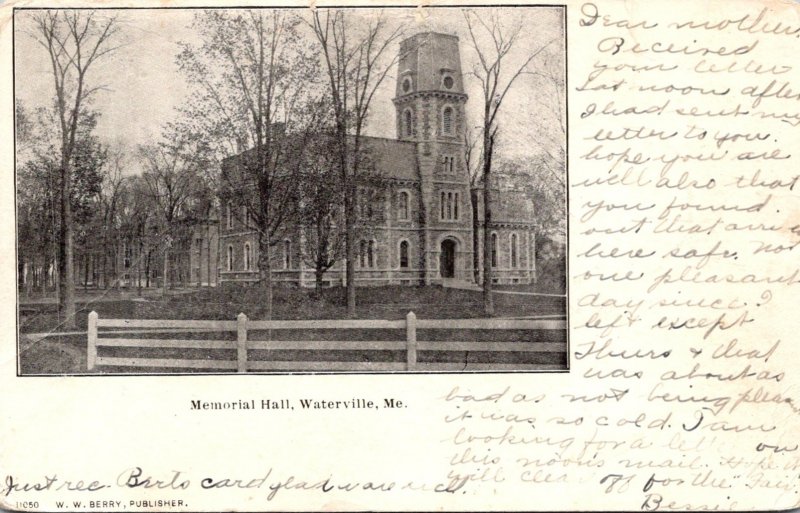 Dear mother,
Received
your letter
Sat noon after
I had sent my
letter to you.
hope you are
well also that
you found
out that arri
here safe. Not
one pleasant
day since I
left except
Thurs & that
was about as
bad as not being pleas
it was so cold. I am
looking for a letter on
this noon's mail. Hope it
will clear off for the Fair
Bessie
Memorial Hall, Waterville, Me.
Just rec. Berts card glad
11050 W. W. BERRY, PUBLISHER.